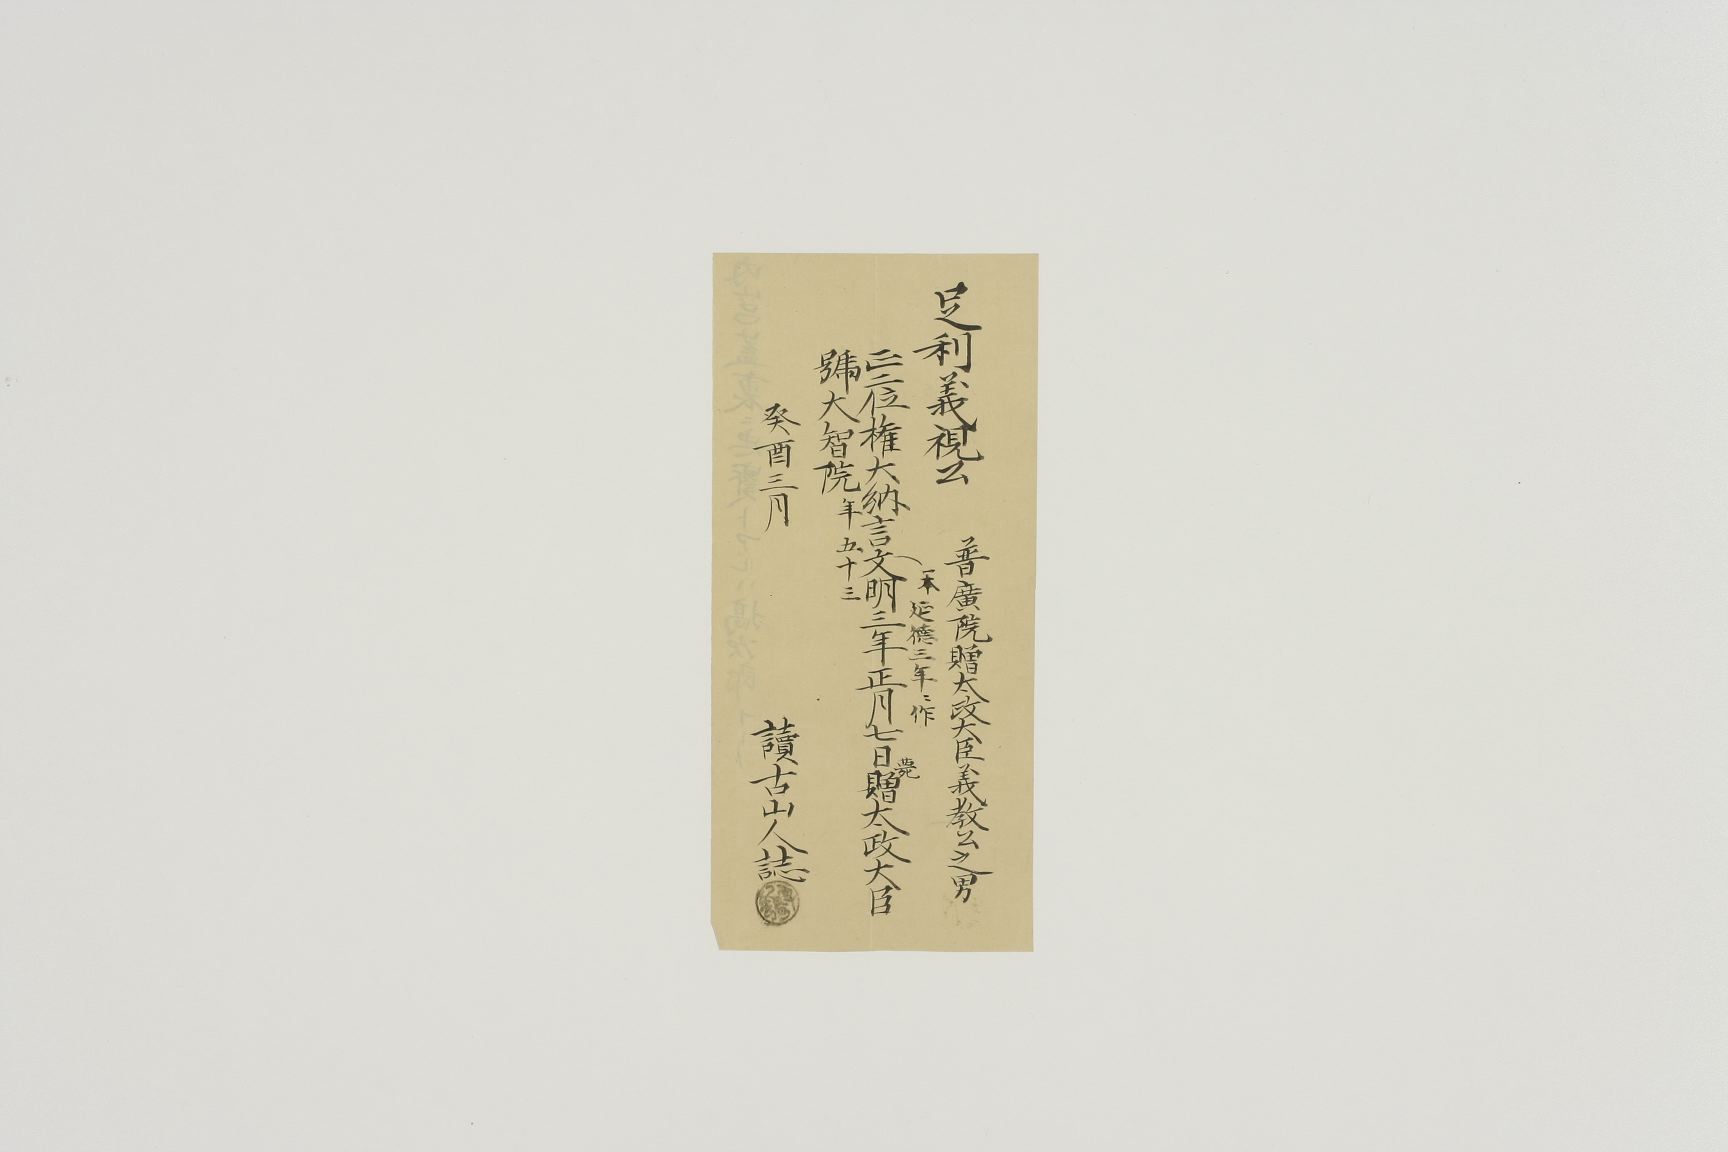 足利義視公
普廣院贈太政大臣義教公之男
一本延德三年ニ作
正二位権大納言文明三年正月七日薨贈太政大臣
號大智院年五十三
癸酉三月
讀古山人誌